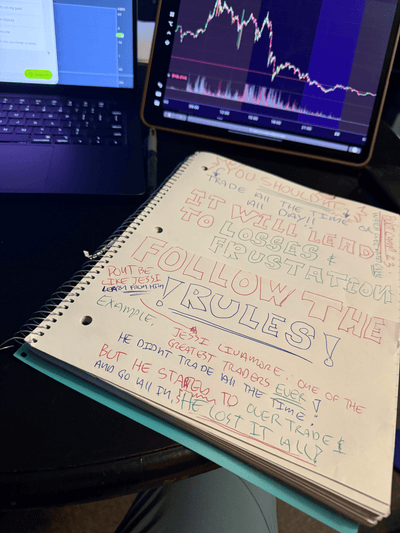 YOU SHOULDN'T
TRADE all THE TIME OR
all DAY!!
IT WILL LEAD
TO LOSSES &
FRUSTATION
FOLLOW THE
! RULES!
DONT BE
LIKE JESSI
LEARN FROM HIM
EXAMPLE.
JESSI LIVAMORE: ONE OF THE
GREATEST TRADERS EVER!
HE DIDNT TRADE all THE TIME!
BUT HE STARTED TO OVERTRADE &
AND GO all IN,
HE LOST IT all?